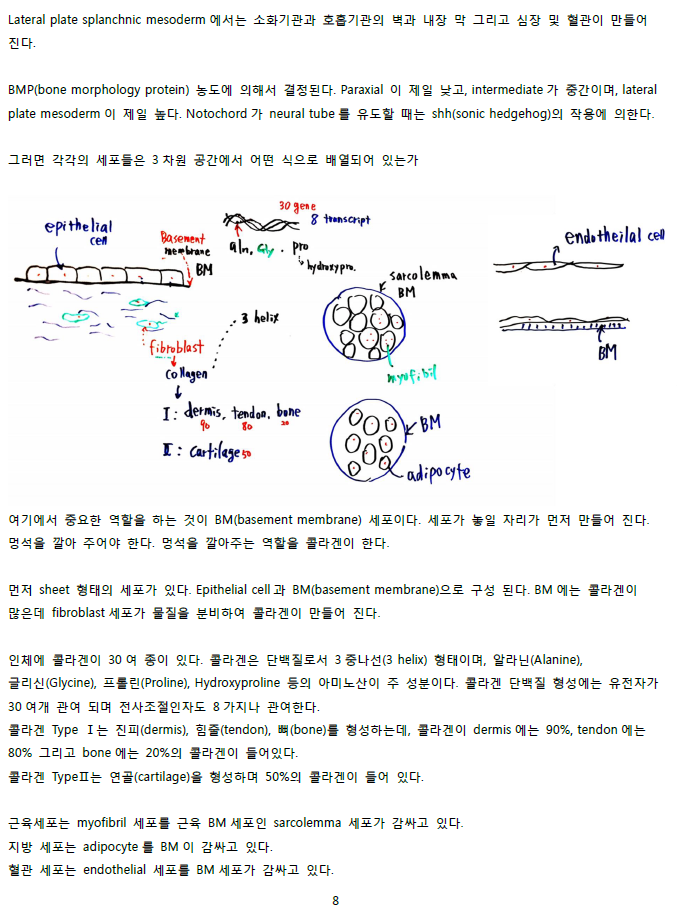 Lateral plate splanchnic mesoderm 에서는 소화기관과 호흡기관의 벽과 내장 막 그리고 심장 및 혈관이 만들어
진다.
BMP(bone morphology protein) 농도에 의해서 결정된다. Paraxial 이 제일 낮고, intermediate 가 중간이며, lateral
plate mesoderm 이 제일 높다. Notochord 가 neural tube 를 유도할 때는 shh(sonic hedgehog)의 작용에 의한다.
그러면 각각의 세포들은 3 차원 공간에서 어떤 식으로 배열되어 있는가
30 gene
8 transcript
epithelial
cell
Basement
membrane
BM
aln, Gly . pro
hydroxypro.
endotheilal cell
sarcolemma
BM
3 helix
fibroblast
collagen
BM
myofibil
I : dermis, tendon, bone
90 80 20
II : cartilage 50
BM
adipocyte
여기에서 중요한 역할을 하는 것이 BM(basement membrane) 세포이다. 세포가 놓일 자리가 먼저 만들어 진다.
멍석을 깔아 주어야 한다. 멍석을 깔아주는 역할을 콜라겐이 한다.
먼저 sheet 형태의 세포가 있다. Epithelial cell 과 BM(basement membrane)으로 구성 된다. BM 에는 콜라겐이
많은데 fibroblast 세포가 물질을 분비하여 콜라겐이 만들어 진다.
인체에 콜라겐이 30 여 종이 있다. 콜라겐은 단백질로서 3 중나선(3 helix) 형태이며, 알라닌(Alanine),
글리신(Glycine), 프롤린(Proline), Hydroxyproline 등의 아미노산이 주 성분이다. 콜라겐 단백질 형성에는 유전자가
30 여개 관여 되며 전사조절인자도 8 가지나 관여한다.
콜라겐 Type Ⅰ는 진피(dermis), 힘줄(tendon), 뼈(bone)를 형성하는데, 콜라겐이 dermis 에는 90%, tendon 에는
80% 그리고 bone 에는 20%의 콜라겐이 들어있다.
콜라겐 TypeⅡ는 연골(cartilage)을 형성하며 50%의 콜라겐이 들어 있다.
근육세포는 myofibril 세포를 근육 BM 세포인 sarcolemma 세포가 감싸고 있다.
지방 세포는 adipocyte 를 BM 이 감싸고 있다.
혈관 세포는 endothelial 세포를 BM 세포가 감싸고 있다.
8